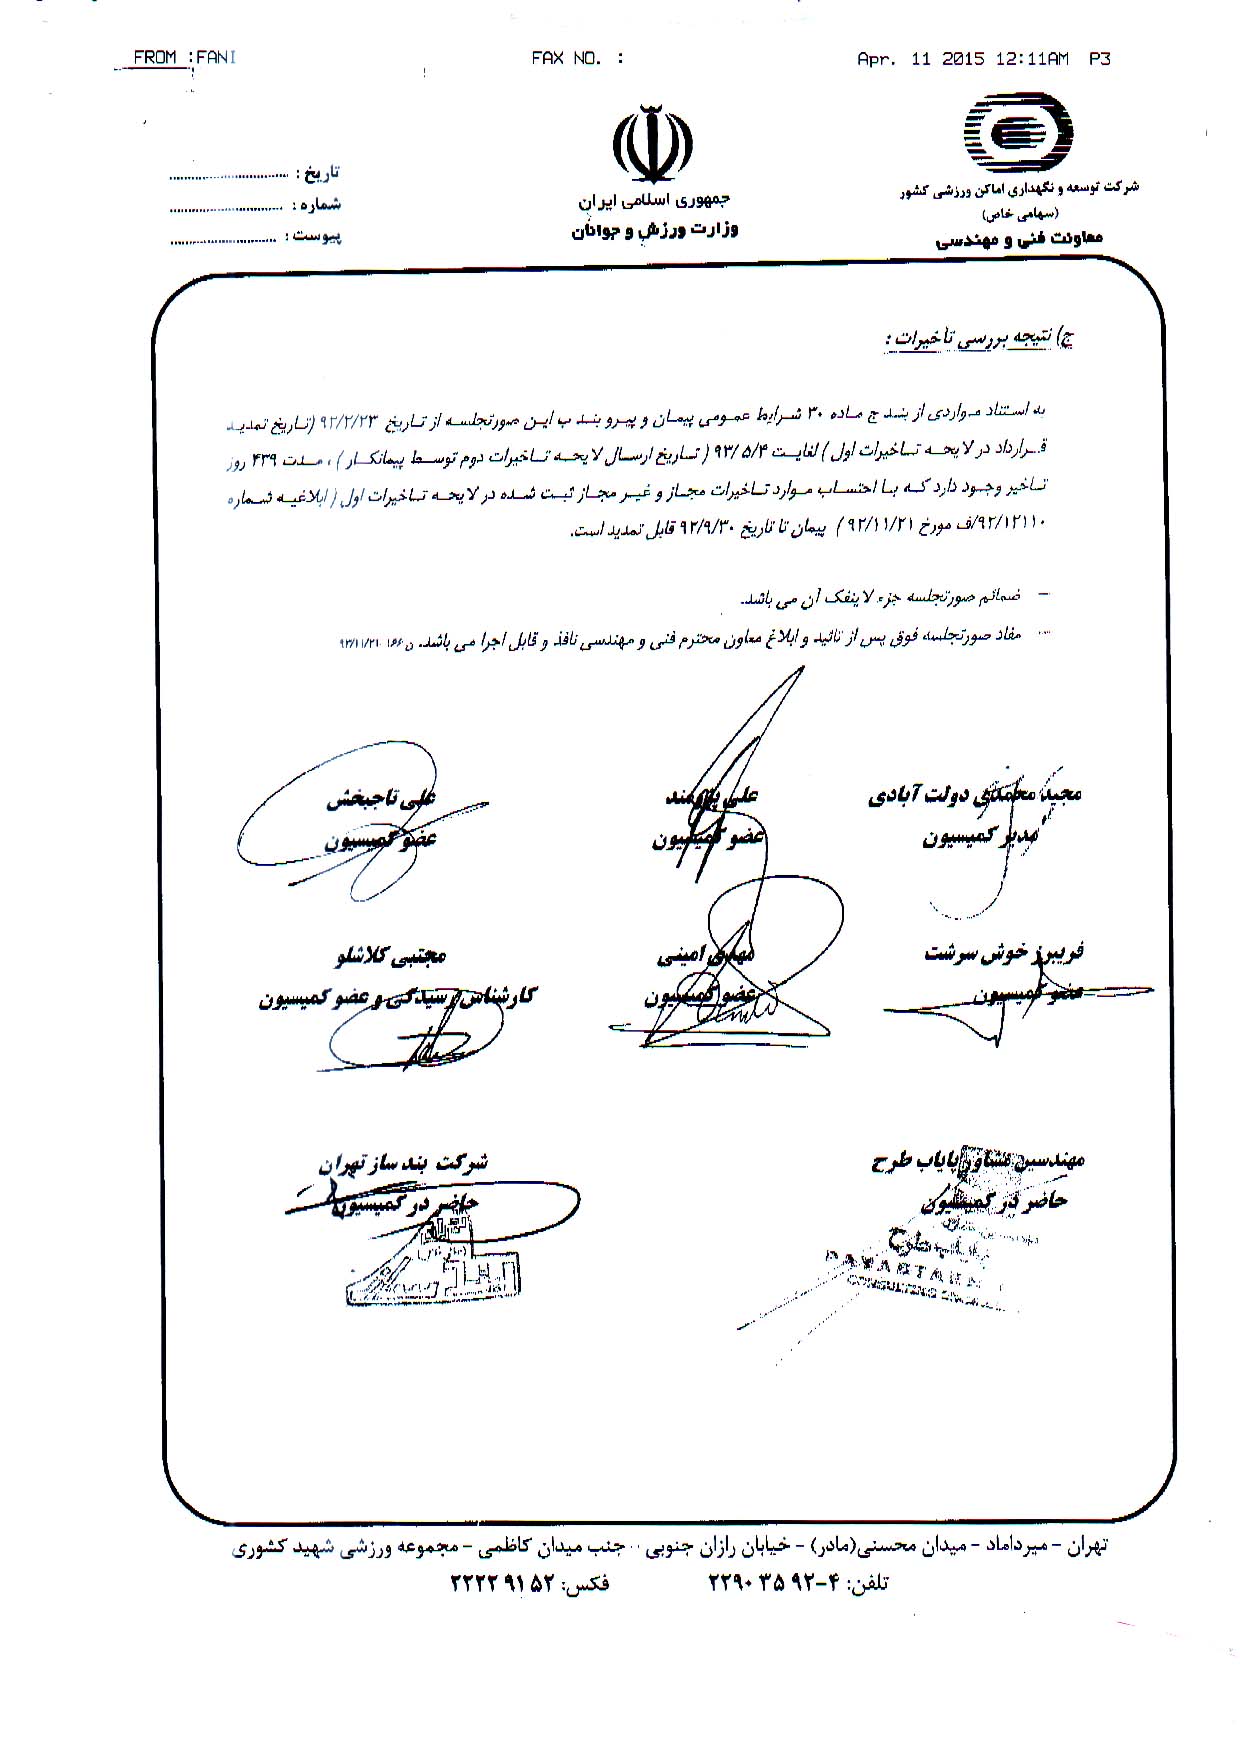 FROM :FANI FAX NO. : Apr. 11 2015 12:11AM P3
شرکت توسعه و نگهداری اماکن ورزشی کشور
(سهامی خاص)
معاونت فنی و مهندسی
جمهوری اسلامی ایران
وزارت ورزش و جوانان
تاریخ : ..............................
شماره : ..............................
پیوست : ..............................
ج) نتیجه بررسی تاخیرات :
به استناد مواردی از بند ج ماده ۳۰ شرایط عمومی پیمان و پیرو بند ب این صورتجلسه از تاریخ ۹۲/۲/۲۳ (تاریخ تمدید
قرارداد در لایحه تاخیرات اول) لغایت ۹۳/۵/۴ (تاریخ ارسال لایحه تاخیرات دوم توسط پیمانکار) ، مدت ۴۳۹ روز
تاخیر وجود دارد که با احتساب موارد تاخیرات مجاز و غیر مجاز ثبت شده در لایحه تاخیرات اول (ابلاغیه شماره
۹۲/۱۲۱۱۰/ف مورخ ۹۲/۱۱/۲۱) پیمان تا تاریخ ۹۲/۹/۳۰ قابل تمدید است.
– ضمائم صورتجلسه جزء لاینفک آن می باشد.
– مفاد صورتجلسه فوق پس از تائید و ابلاغ معاون محترم فنی و مهندسی نافذ و قابل اجرا می باشد.
مجید محمدی دولت آبادی علی علی تاجبخش
مدیر کمیسیون عضو کمیسیون عضو کمیسیون
فریبرز خوش سرشت مهدی امینی مجتبی کلاشلو
عضو کمیسیون عضو کمیسیون کارشناس رسیدگی و عضو کمیسیون
مهندسین مشاور پایاب طرح شرکت بند ساز تهران
حاضر در کمیسیون حاضر در کمیسیون
تهران – میرداماد – میدان محسنی(مادر) – خیابان رازان جنوبی – جنب میدان کاظمی – مجموعه ورزشی شهید کشوری
تلفن: ۴–۲۲۹۰۳۵۹۲ فکس: ۲۲۲۲۹۱۵۲